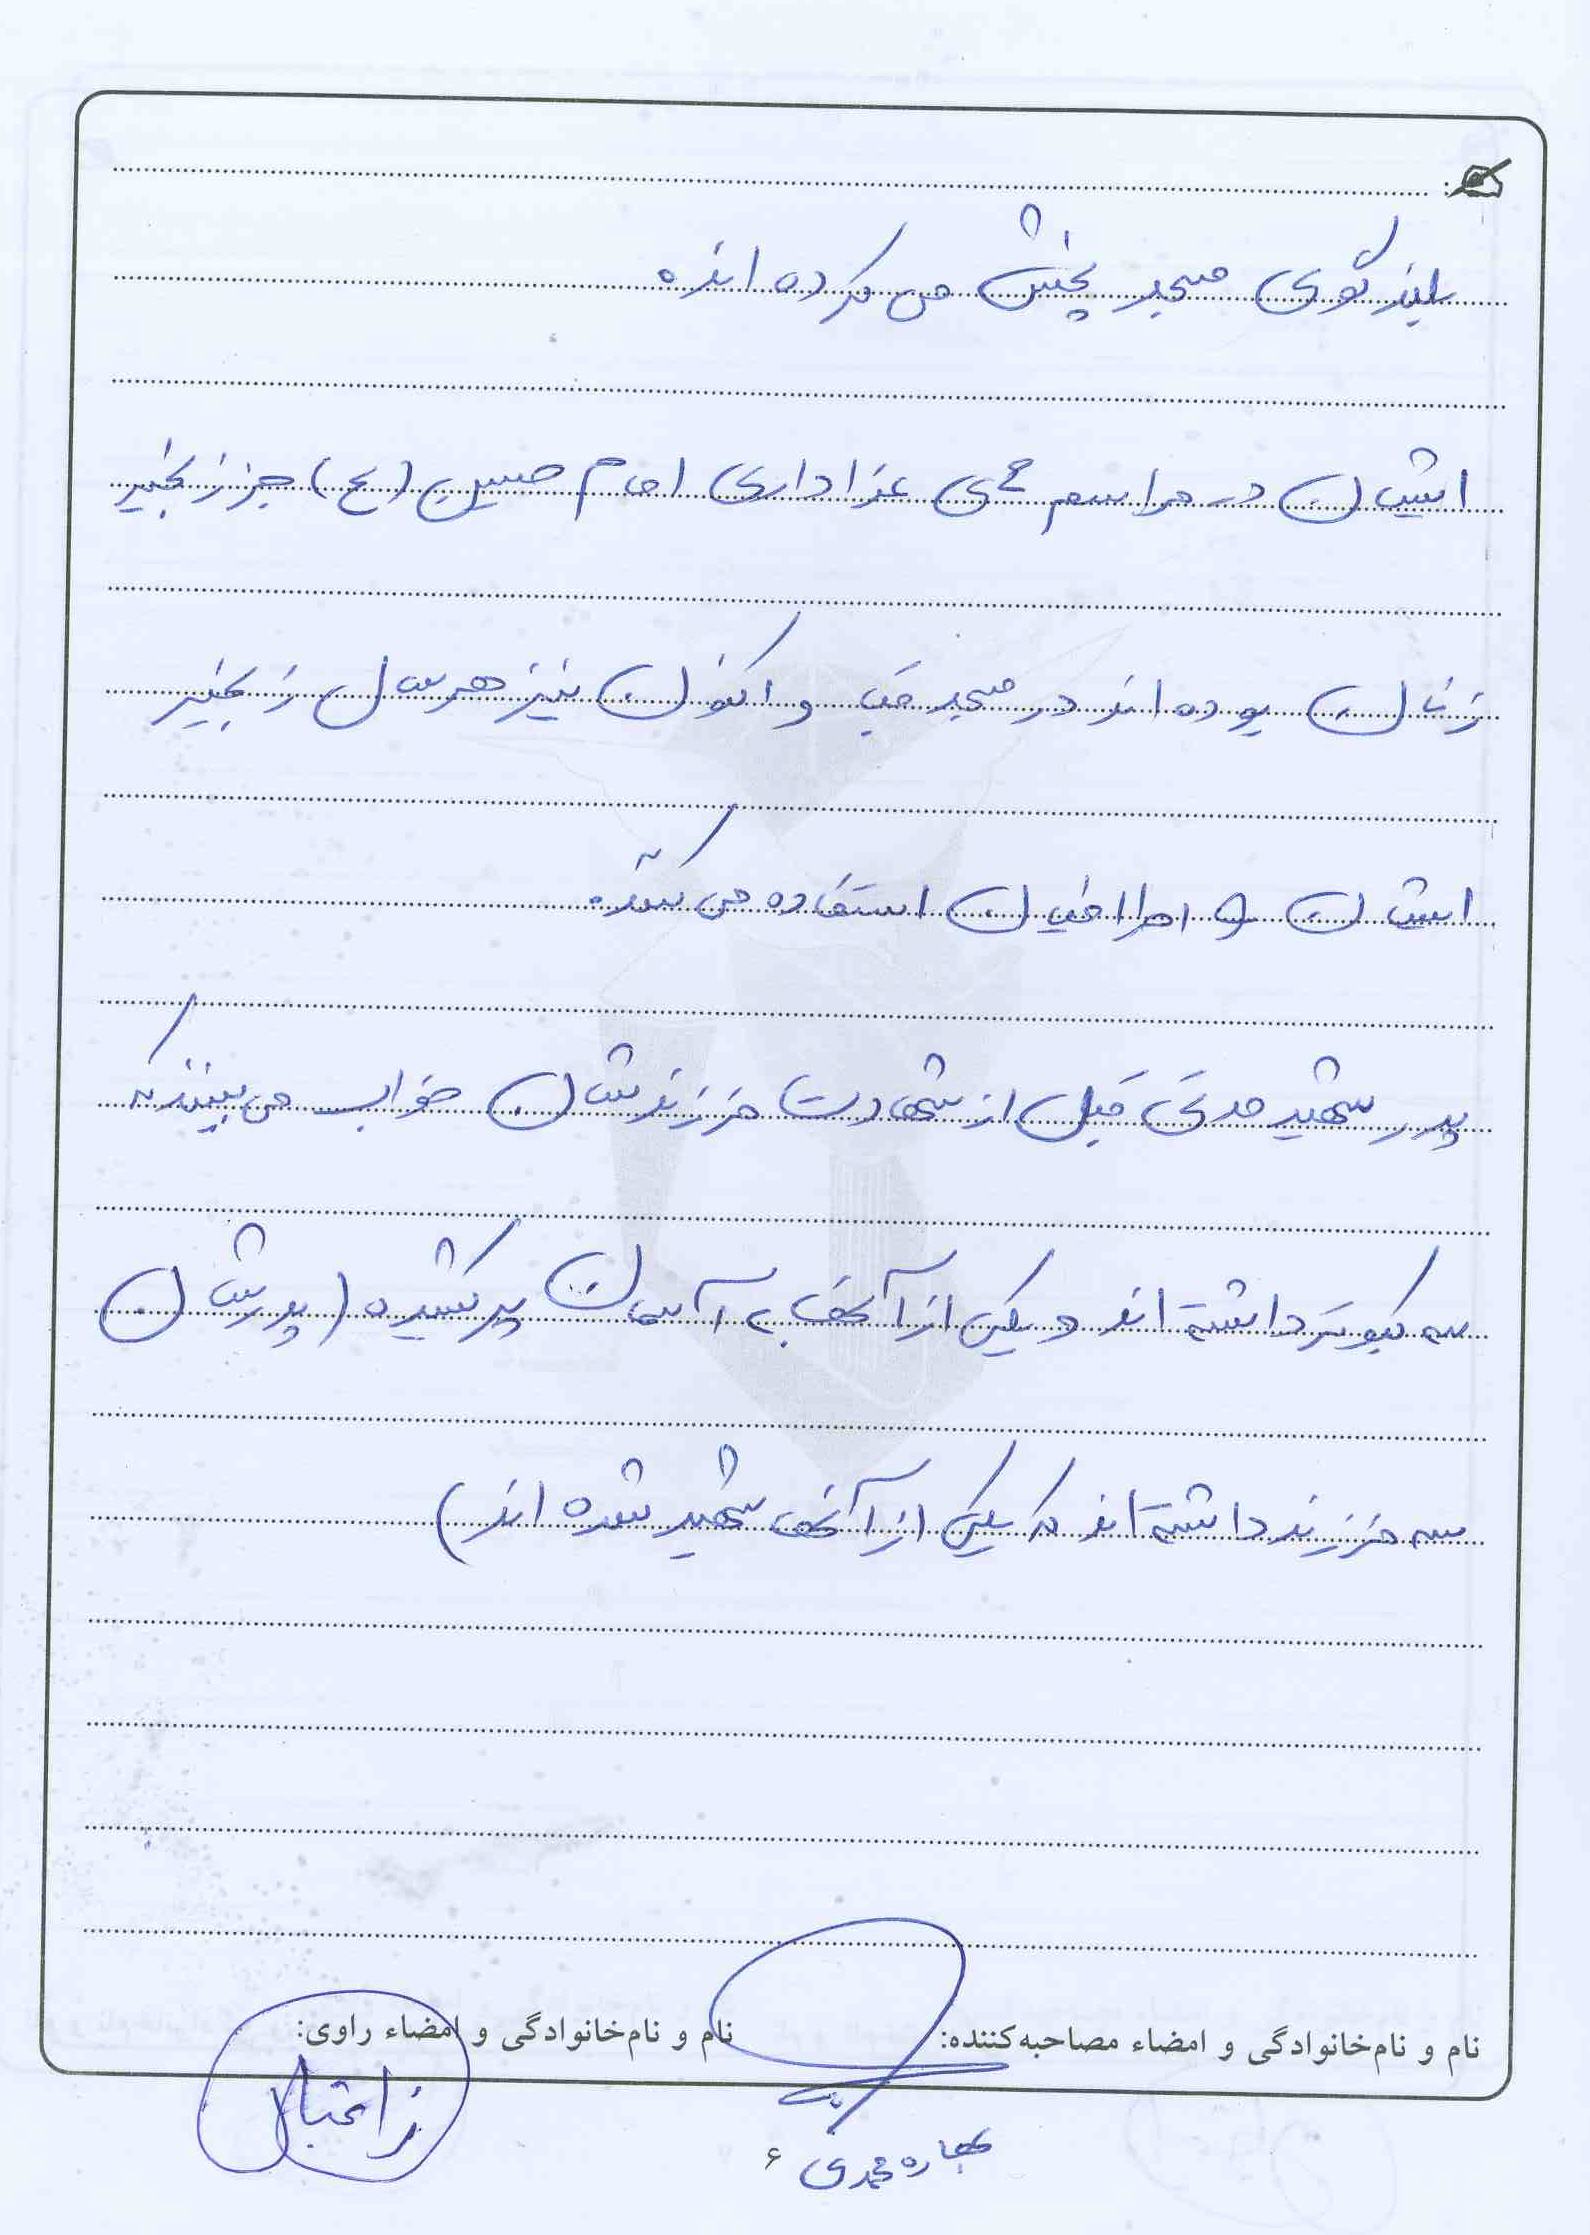 بلندگوی مسجد پخش می کرده اند.
ایشان در مراسم های عزاداری امام حسین (ع) جز زنجیر
زنان بوده اند در مسجد قبا و اکنون نیز هر سال زنجیر
ایشان و اطرافیان استفاده می کنند.
پدر شهید مدتی قبل از شهادت فرزندشان خواب می بینند که
سه کبوتر داشته اند و یکی از آنها به آسمان پر کشیده (پدرشان
سه فرزند داشته اند که یکی از آنها شهید شده اند)
نام و نام‌خانوادگی و امضاء مصاحبه‌کننده: نام و نام‌خانوادگی و امضاء راوی:
بهاره محمدی
۶